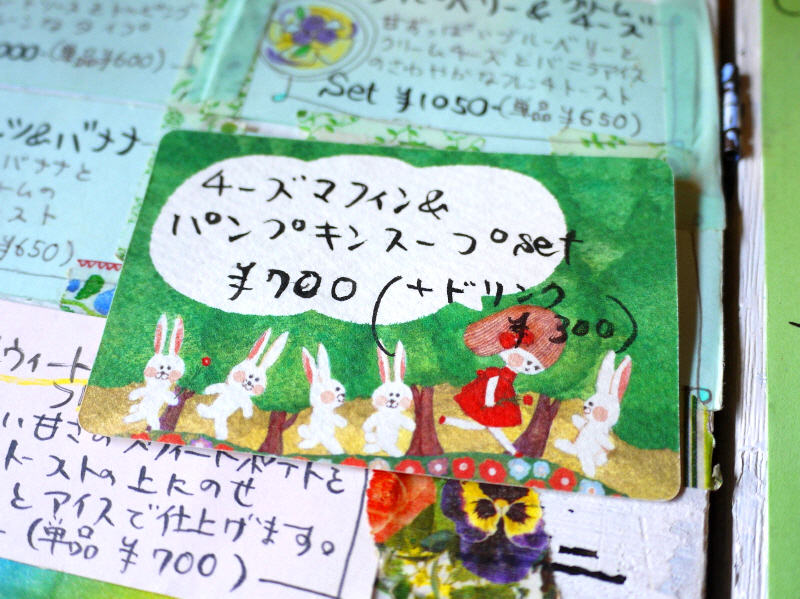 000-(単品¥600)
ブルーベリー&クリームチーズ
甘ずっぱいブルーベリーと
クリームチーズとバニラアイス
のさわやかなフレンチトースト
Set ¥1050-(単品¥650)
&バナナ
バナナと
ームの
スト
¥650)
チーズマフィン&
パンプキンスープset
¥700(+ドリンク
¥300)
ウィート
い甘さのスウィートポテトと
トーストの上にのせ
とアイスで仕上げます。
(単品 ¥700)